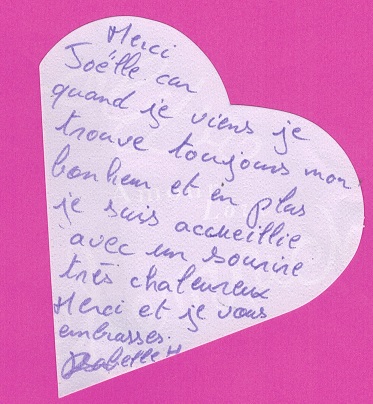 Merci
Joëlle car
quand je viens je
trouve toujours mon
bonheur et en plus
je suis accueillie
avec un sourire
très chaleureux
Merci et je vous
embrasses.
Isabelle H